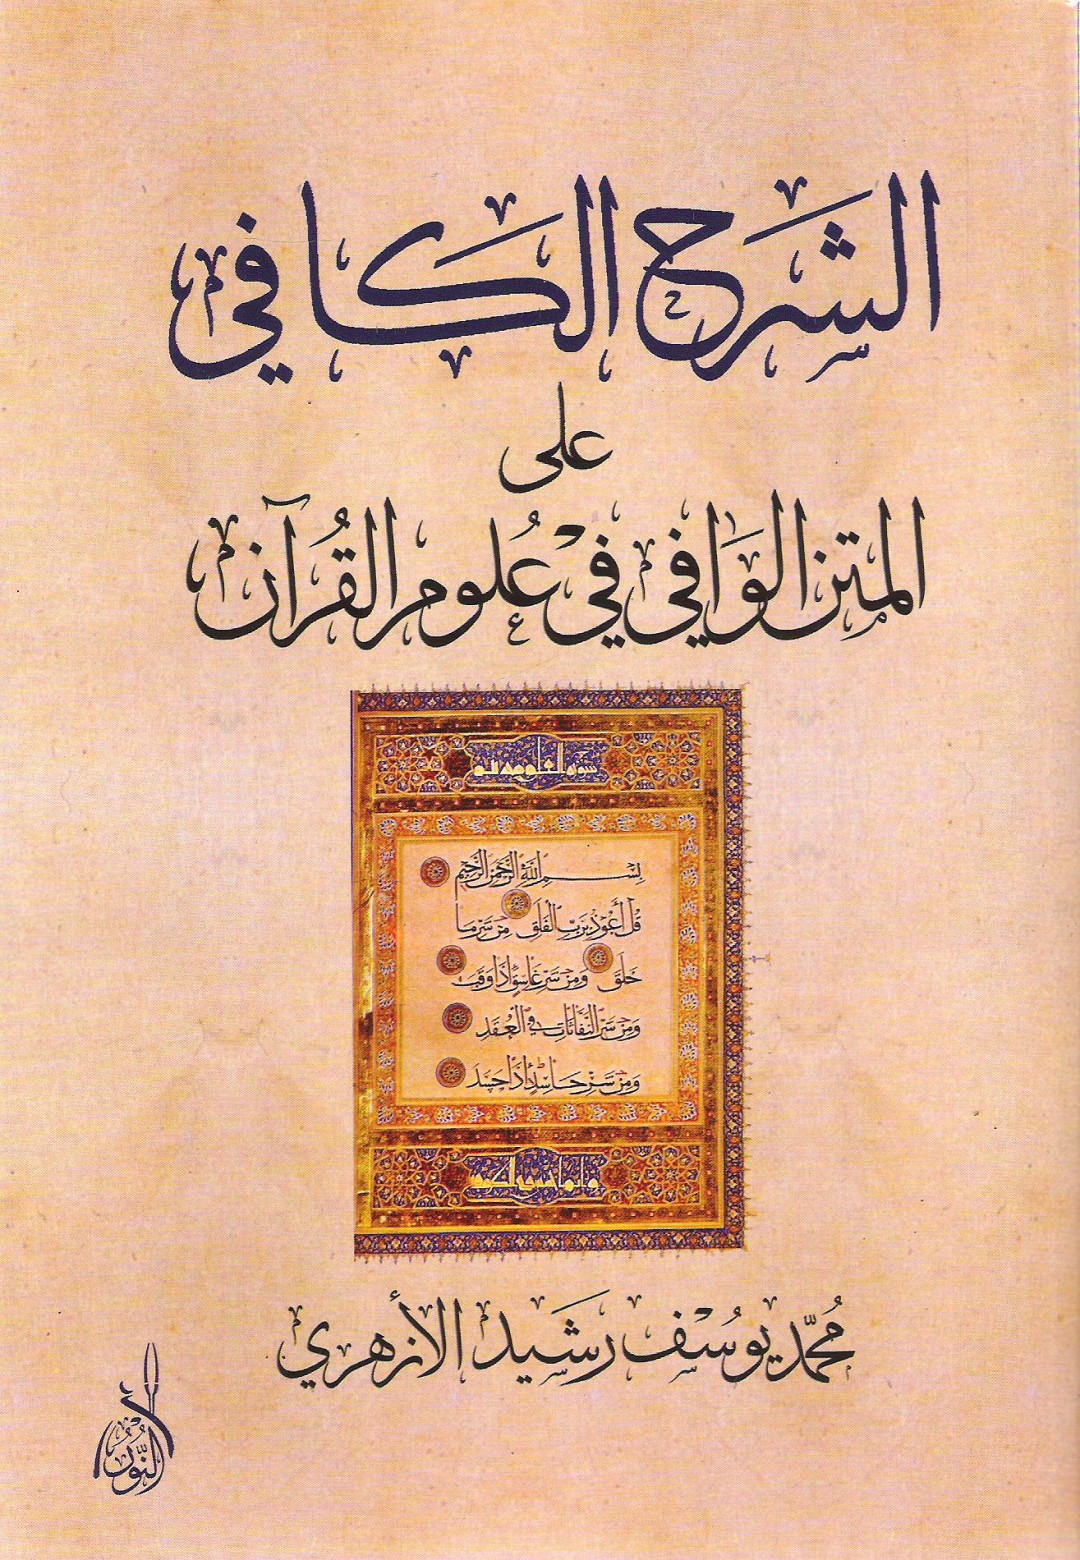 الشرح الكافي
على
المتن الوافي في علوم القرآن
سورة الفلق
بسم الله الرحمن الرحيم
قل أعوذ برب الفلق من شر ما
خلق ومن شر غاسق إذا وقب
ومن شر النفاثات في العقد
ومن شر حاسد إذا حسد
محمد يوسف رشيد الأزهري
النور